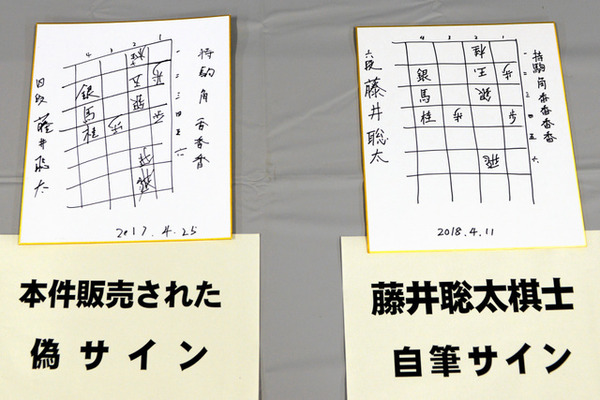 持駒 角 香香香
4 3 2 1
一
二
三
四
五
六
桂
玉 歩
銀 銀
馬
桂 歩 歩
飛
四段 藤井聡太
2017.4.25
本件販売された
偽サイン
持駒 角 香香香香
4 3 2 1
一
二
三
四
五
六
桂
銀 玉 歩
馬 銀
桂 歩 歩
飛
六段 藤井聡太
2018.4.11
藤井聡太棋士
自筆サイン